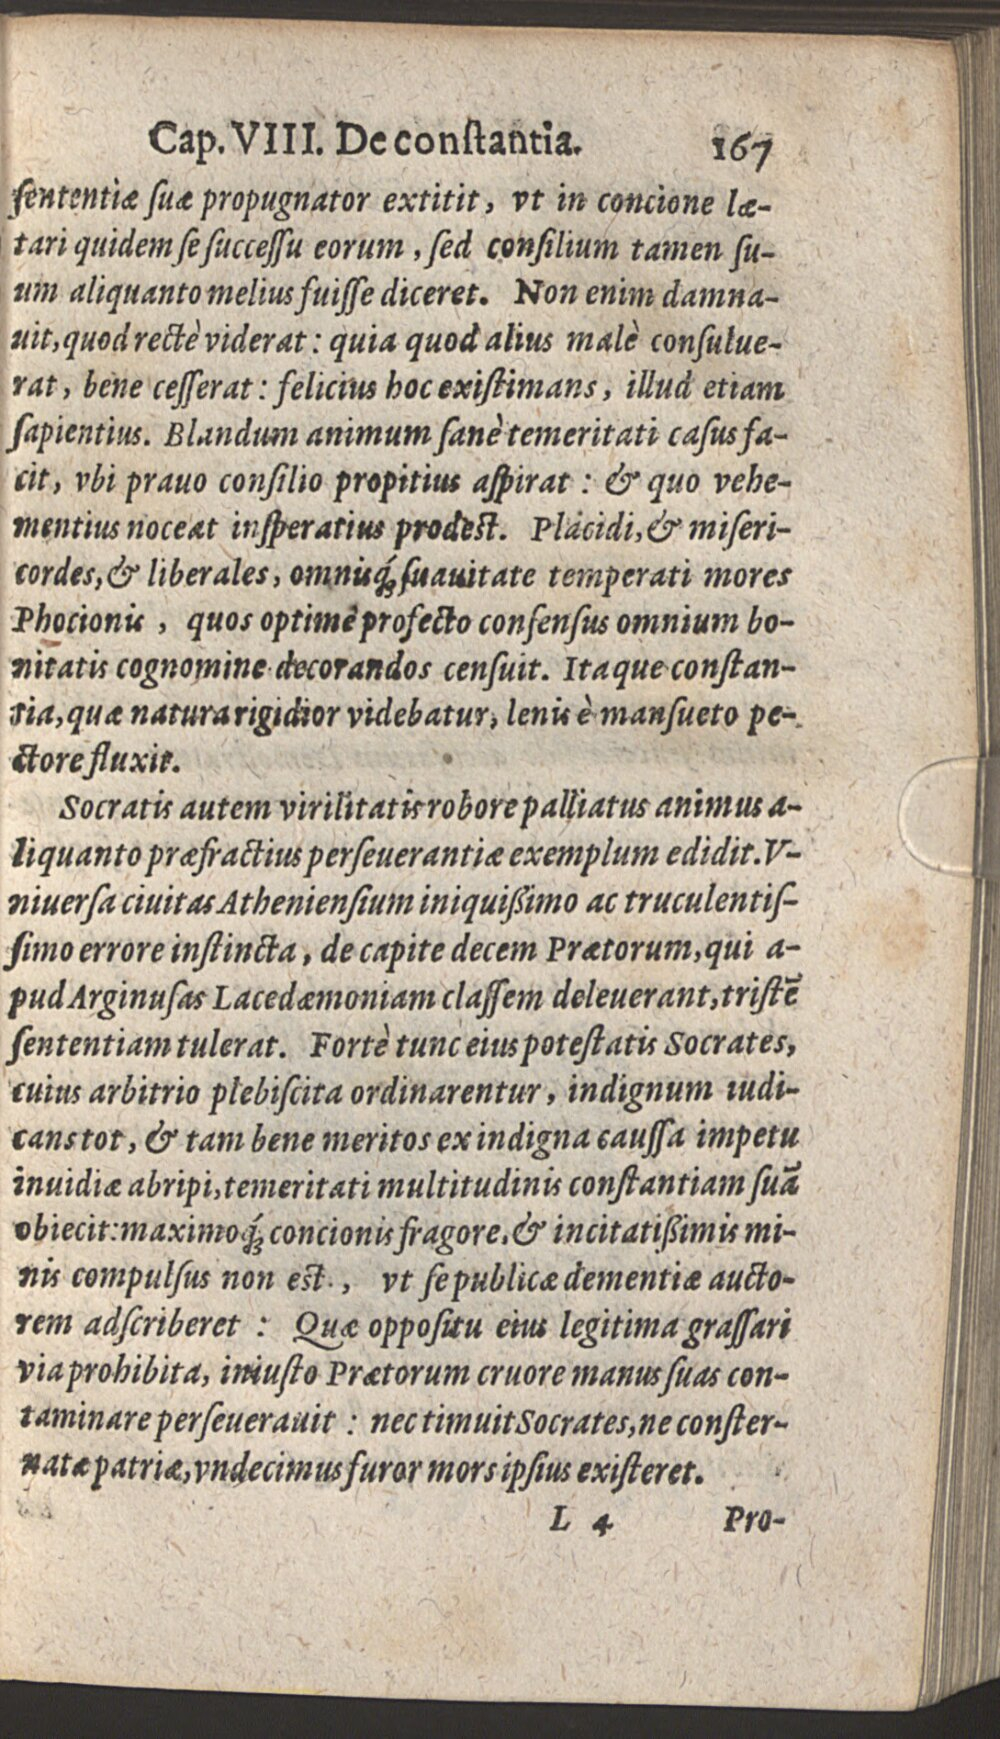 Cap. VIII. De conſtantia. 167
ſententiæ ſuæ propugnator extitit, vt in concione læ-
tari quidem ſe ſucceſſu eorum, ſed conſilium tamen ſu-
um aliquanto melius fuiſſe diceret. Non enim damna-
uit, quod rectè viderat: quia quod alius malè conſulue-
rat, bene ceſſerat: felicius hoc exiſtimans, illud etiam
ſapientius. Blandum animum ſanè temeritati caſus fa-
cit, vbi prauo conſilio propitius aſpirat: & quo vehe-
mentius noceat inſperatius prodeſt. Placidi, & miſeri-
cordes, & liberales, omniq́; ſuauitate temperati mores
Phocionis, quos optimè profecto conſenſus omnium bo-
nitatis cognomine decorandos cenſuit. Itaque conſtan-
tia, quæ natura rigidior videbatur, lenis è manſueto pe-
ctore fluxit.
Socratis autem virilitatis robore palliatus animus a-
liquanto præfractius perſeuerantiæ exemplum edidit. V-
niuerſa ciuitas Athenienſium iniquißimo ac truculentiſ-
ſimo errore inſtincta, de capite decem Prætorum, qui a-
pud Arginuſas Lacedæmoniam claſſem deleuerant, triſtē
ſententiam tulerat. Fortè tunc eius poteſtatis Socrates,
cuius arbitrio plebiſcita ordinarentur, indignum iudi-
cans tot, & tam bene meritos ex indigna cauſſa impetu
inuidiæ abripi, temeritati multitudinis conſtantiam ſuā
obiecit: maximoq́; concionis fragore, & incitatißimis mi-
nis compulſus non eſt, vt ſe publicæ dementiæ aucto-
rem adſcriberet: Quæ oppoſitu eius legitima graſſari
via prohibita, iniuſto Prætorum cruore manus ſuas con-
taminare perſeuerauit: nec timuit Socrates, ne conſter-
natæ patriæ, vndecimus furor mors ipſius exiſteret.
L 4 Pro-